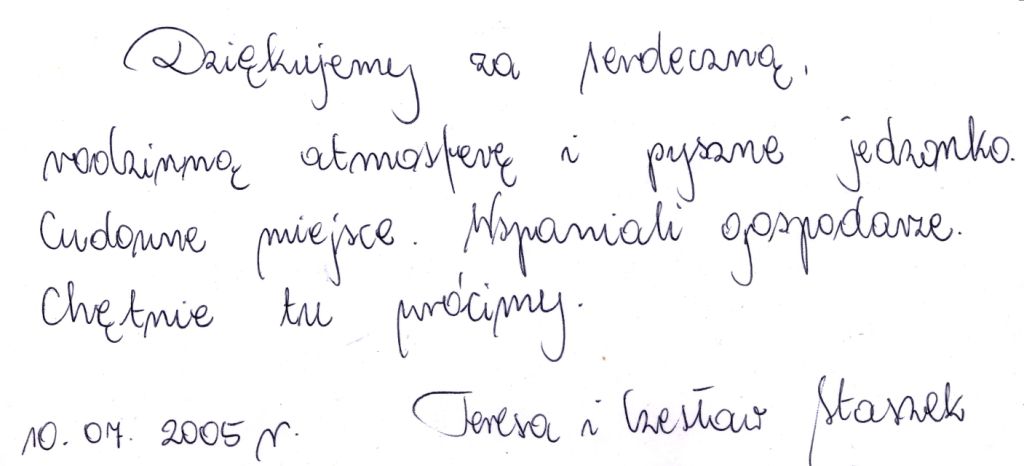 Dziękujemy za serdeczną,
rodzinną atmosferę i pyszne jedzonko.
Cudowne miejsce. Wspaniali gospodarze.
Chętnie tu wrócimy.
Teresa i Czesław Staszek
10.07.2005 r.